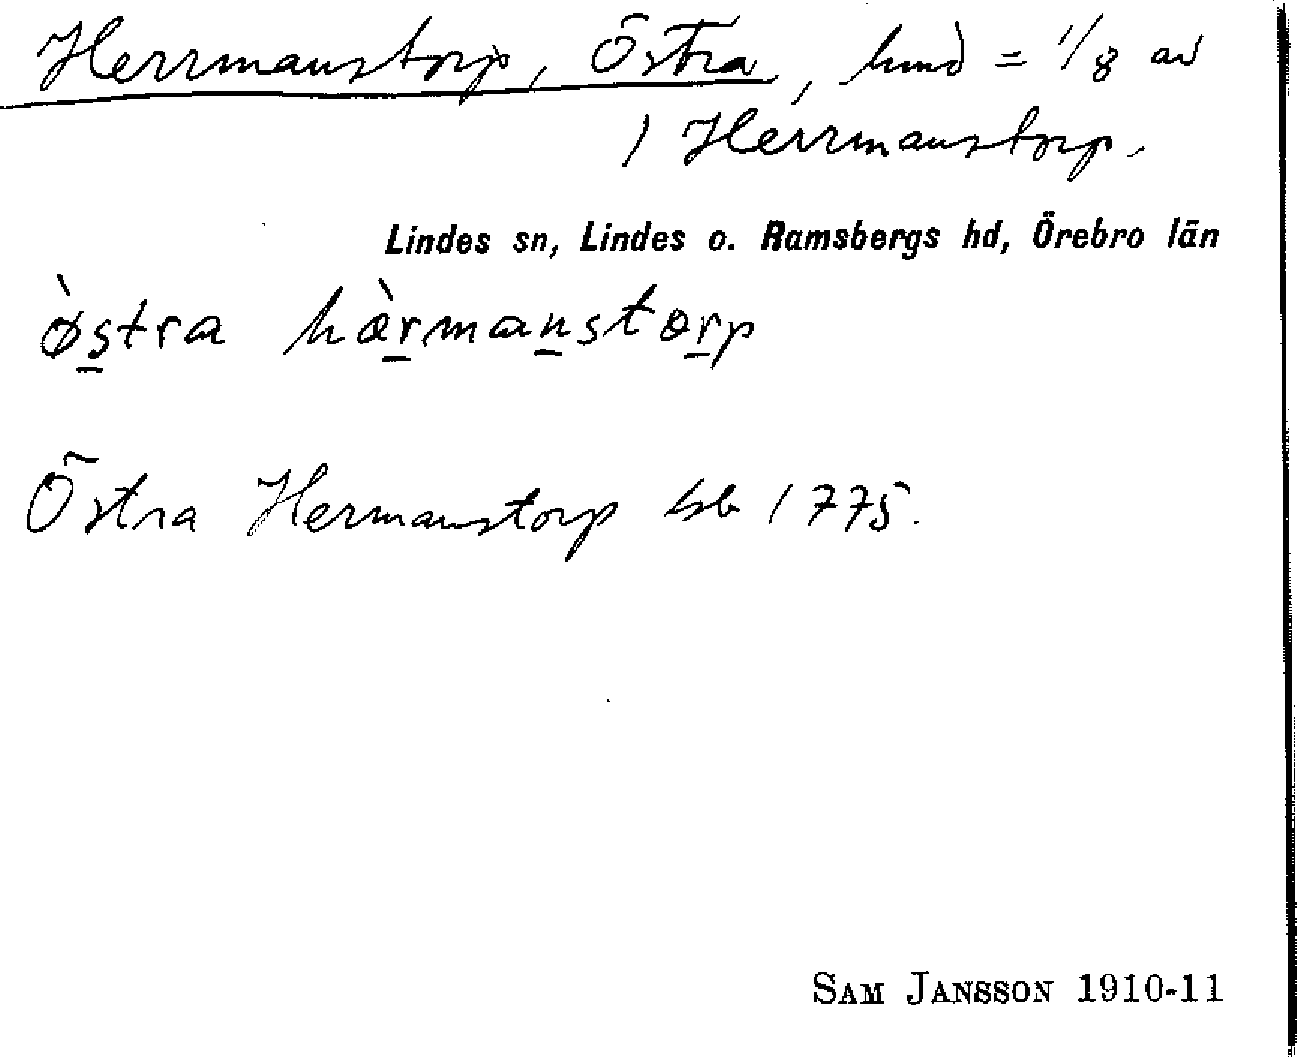 Herrmanstorp, Östra, hmd = 1/8 av
1 Herrmanstorp.
Lindes sn, Lindes o. Ramsbergs hd, Örebro län
ø̀s̲tra hæ̀r̲man̲stor̲p
Östra Hermanstorp hb 1775.
SAM JANSSON 1910-11